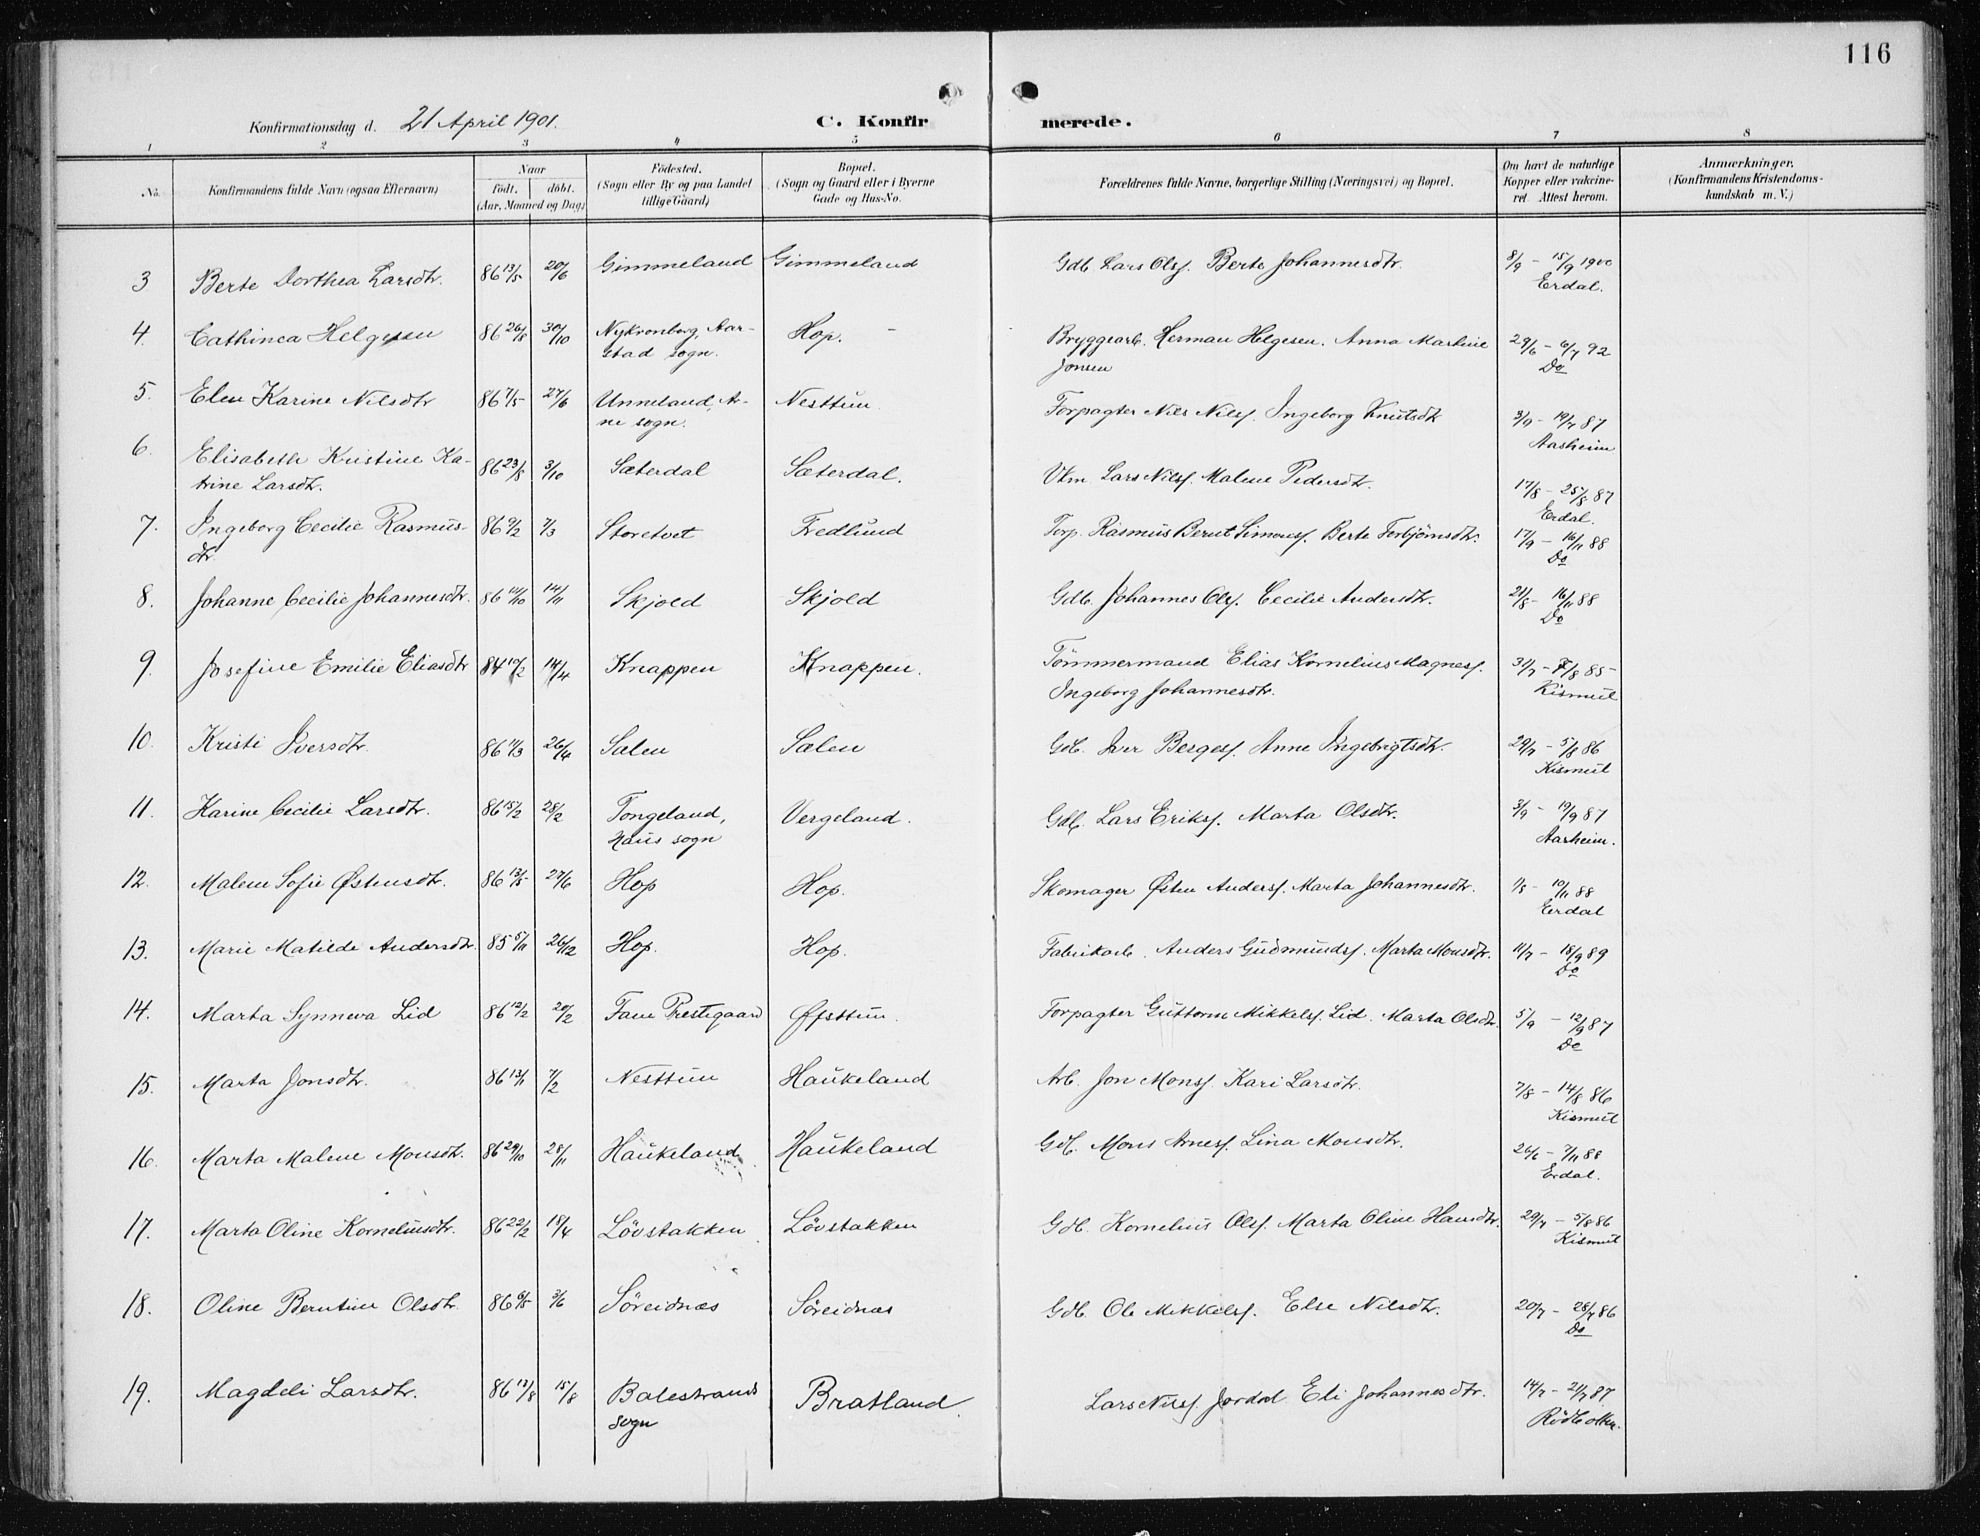 116
Konfirmationsdag d. 21 April 1901. C. Konfirmerede.
1 2 3 4 5 6 7 8
No. Konfirmandens fulde Navn (ogsaa Efternavn) Naar født. døbt. (Aar, Maaned og Dag) Fødested. (Sogn eller By og paa Landet tillige Gaard) Bopæl. (Sogn og Gaard eller i Byerne Gade og Hus-No. Forældrenes fulde Navne, borgerlige Stilling (Næringsvei) og Bopæl. Om havt de naturlige Kopper eller vakcineret. Attest herom. Anmærkninger. (Konfirmandens Kristendomskundskab m. V.)
3 Berte Dorthea Larsdtr. 86 13/5 20/6 Gimmeland Gimmeland Gdb. Lars Olsf. Berte Johannesdtr. 8/9 - 15/9 1900
Erdal.
4. Cathinca Helgesen 86 26/8 30/10 Nykronborg, Aar- Hop. Bryggearb. Herman Helgesen. Anna Martine 29/6 - 6/7 92
stad sogn. Jonsen Do
5. Elen Karine Nilsdtr 86 7/5 27/6 Unneland, Ar- Nesttun. Forpagter Nils Nilsf. Ingeborg Knutsdtr 3/9 - 19/9 87
ne sogn. Aarheim
6. Elisabeth Kristine Ka- 86 23/8 3/10 Sæterdal Sæterdal. Lars Nilsf. Malene Pedersdtr. 17/8 - 25/8 87
trine Larsdtr. Erdal.
7. Ingeborg Cecilie Rasmus- 86 9/2 7/3 Storetvet Fredlund Forp. Rasmus Bernt Simonsf. Berte Torbjörnsdtr. 17/9 - 16/11 88
dtr. Do
8. Johanne Cecilie Johannesdtr. 86 14/11 Skjold Skjold Gdb. Johannes Olsf. Cecilie Andersdtr. 21/8 - 16/11 88
Do
9. Josefine Emilie Eliasdtr 84 10/2 14/4 Knappen Knappen. Tömmermand Elias Kornelius Magnesf. 31/7 - 85
Ingeborg Johannesdtr. Kismul
10. Kristi Iversdtr. 86 11/3 26/4 Salen Salen Gdb. Iver Bergesf. Anne Ingebrigtsdtr. 29/7 - 5/8 86
Kismul
11. Karine Cecilie Larsdtr. 86 15/2 28/2 Tongeland, Vergeland. Gdb. Lars Eriksf. Marta Olsdtr. 3/9 - 19/9 87
Haus sogn Aarheim.
12. Malene Sofie Østensdtr. 86 13/5 27/6 Hop Hop. Skomager Østen Andersf. Marta Johannesdtr. 1/8 - 10/11 88
Eerdal
13. Marie Matilde Andersdtr. 85 5/11 26/12 Hop. Hop. Fabrikarb. Anders Gudmundsf. Marta Monsdtr. 11/7 - 18/9 89
Do
14. Marta Synneva Lid 86 12/2 20/2 Fane Prestegaard Øfsttun. Forpagter Guttorm Mikkelsf. Lid. Marta Olsdtr. 5/9 - 12/9 87
Do
15. Marta Jonsdtr. 86 13/1 7/2 Nesttun Haukeland Arb. Jon Monsf Kari Larsdtr. 7/8 - 14/8 86
Kismul
16. Marta Malene Monsdtr. 86 29/10 28/11 Haukeland Haukeland Gdb. Mons Arnesf. Lina Monsdtr. 26/6 - 7/11 88
Erdal.
17. Marta Oline Korneliusdtr. 86 22/2 18/4 Lövstakken Lövstakken Gdb. Kornelius Olsf. Marta Oline Hansdtr. 29/7 - 5/8 86
Kismul
18. Oline Berntine Olsdtr. 86 6/5 3/6 Söreidnæs Söreidnæs Gdb. Ole Mikkelsf. Else Nilsdtr. 20/7 - 28/7 86
Do
19. Magdeli Larsdtr. 86 12/8 15/8 Balestrands Bratland. Lars Nilsf. Jordal Eli Johannesdtr. 14/7 - 21/7 87
sogn